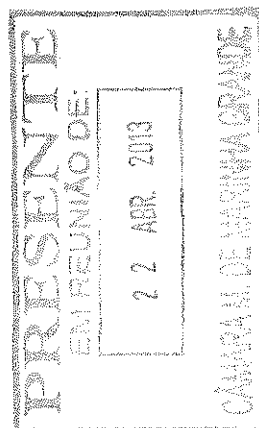 PRESENTE
EM REUNIÃO DE:
22 ABR. 2013
CÂMARA M. DE MARINHA GRANDE